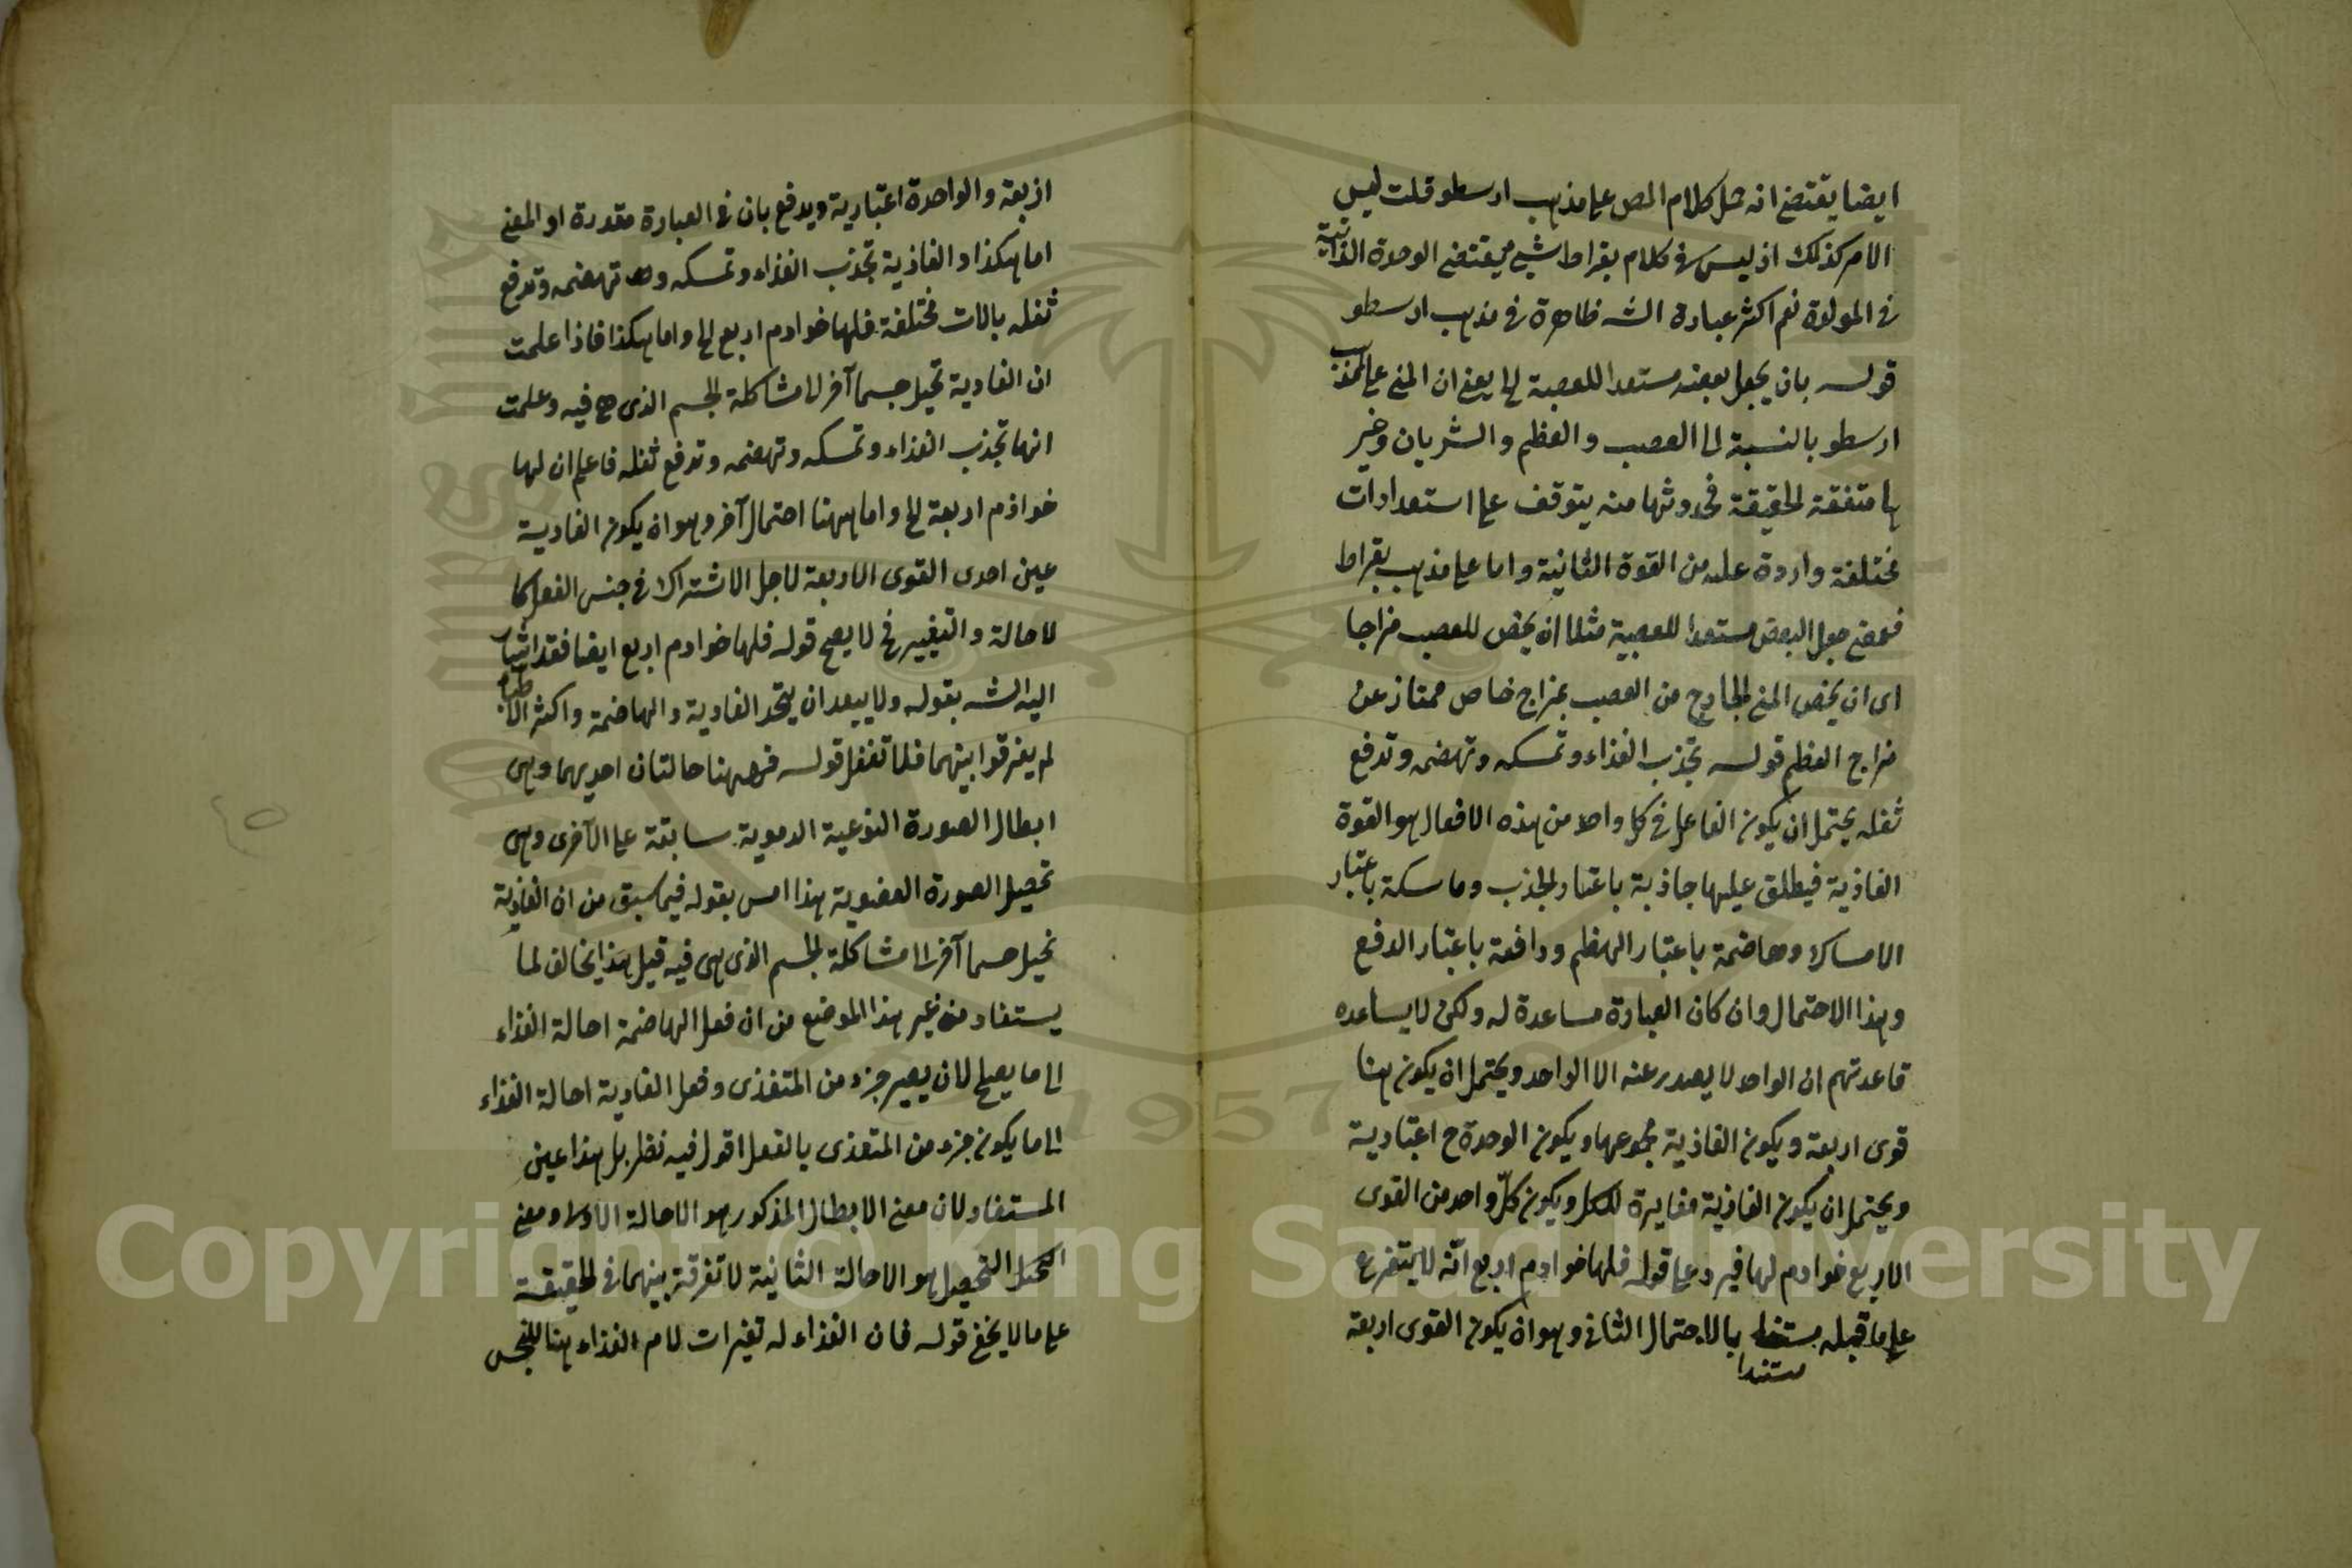 ايضا يقتضي انه مثل كلام المص على مذهب ارسطو قلت ليس
الامر كذلك اذ ليس في كلام بقراط شيئ يقتضي الوحدة الذاتية
في المولدة نعم اكثر عبارة الشه ظاهرة في مذهب ارسطو
قوله بان يجعل بعضه مستعدا للعصبة الخ يعني ان المني على مذهب
ارسطو بالنسبة الى العصب والعظم والشريان وغير
ها متفقة الحقيقة فحدوثها منه يتوقف على استعدادات
مختلفة واردة عليه من القوة الثانية واما على مذهب بقراط
فمعنى جعل البعض مستعدا للعصبية مثلا ان يخص للعصب مزاجا
اى ان يخص المني الخارج من العصب بمزاج خاص ممتاز عن
مزاج العظم قوله تجذب الغذاء وتمسكه وتهضمه وتدفع
ثفله يحتمل ان يكون الفاعل في كل واحد من هذه الافعال هو القوة
الغاذية فيطلق عليها جاذبة باعتبار الجذب وماسكة باعتبار
الامساك وهاضمة باعتبار الهضم ودافعة باعتبار الدفع
وهذا الاحتمال وان كان العبارة مساعدة له ولكن لا يساعده
قاعدتهم ان الواحد لا يصدر عنه الا الواحد ويحتمل ان يكون هنا
قوى اربعة ويكون الغاذية مجموعها ويكون الوحدة ح اعتبارية
ويحتمل ان يكون الغاذية مغايرة للكل ويكون كلّ واحد من القوى
الاربع خوادم لها فيرد على قوله فلها خوادم اربع انّه لا يتفرع
على ما قبله مستندا بالاحتمال الثاني وهو ان يكون القوى اربعة
اربعة والواحدة اعتبارية ويدفع بان في العبارة مقدرة او المعنى
اما هكذا والغاذية تجذب الغذاء وتمسكه وتهضمه وتدفع
ثفله بالات مختلفة فلها خوادم اربع الخ واما هكذا فاذا علمت
ان الغادية تحيل جسما آخر الى مشاكلة الجسم الذى هى فيه وعلمت
انها تجذب الغذاء وتمسكه وتهضمه وتدفع ثفله فاعلم ان لها
خوادم اربعة الخ واما ههنا احتمال آخر وهو ان يكون الغادية
عين احدى القوى الاربعة لاجل الاشتراك في جنس الفعل كا
لاحالة والتغيير فح لا يصح قوله فلها خوادم اربع ايضا فقد اشار
اليه الشه بقوله ولا يبعد ان يتحد الغادية والهاضمة واكثر الاطباء
لم يفرقوا بينهما فلا تغفل قوله فههنا حالتان احديهما وهى
ابطال الصورة النوعية الدموية سابقة على الآخرى وهى
تحصيل الصورة العضوية هذا امس بقوله فيما سبق من ان الغاذية
تحيل جسما آخر الى مشاكلة الجسم الذى هى فيه قيل هذا يخالف لما
يستفاد من غير هذا الموضع من ان فعل الهاضمة احالة الغذاء
الى ما يصلح لان يصير جزء من المتغذى وفعل الغادية احالة الغذاء
الى ما يكون جزء من المتغذى بالفعل اقول فيه نظر بل هذا عين
المستفاد لان معنى الابطال المذكور هو الاحالة الاولى ومعنى
التحصيل هو الاحالة الثانية لا تفرقة بينهما في الحقيقة
على ما لا يخفى قوله فان الغذاء له تغيرات لام الغذاء هنا للجنس
٤٥
Copyright © King Saud University
1957